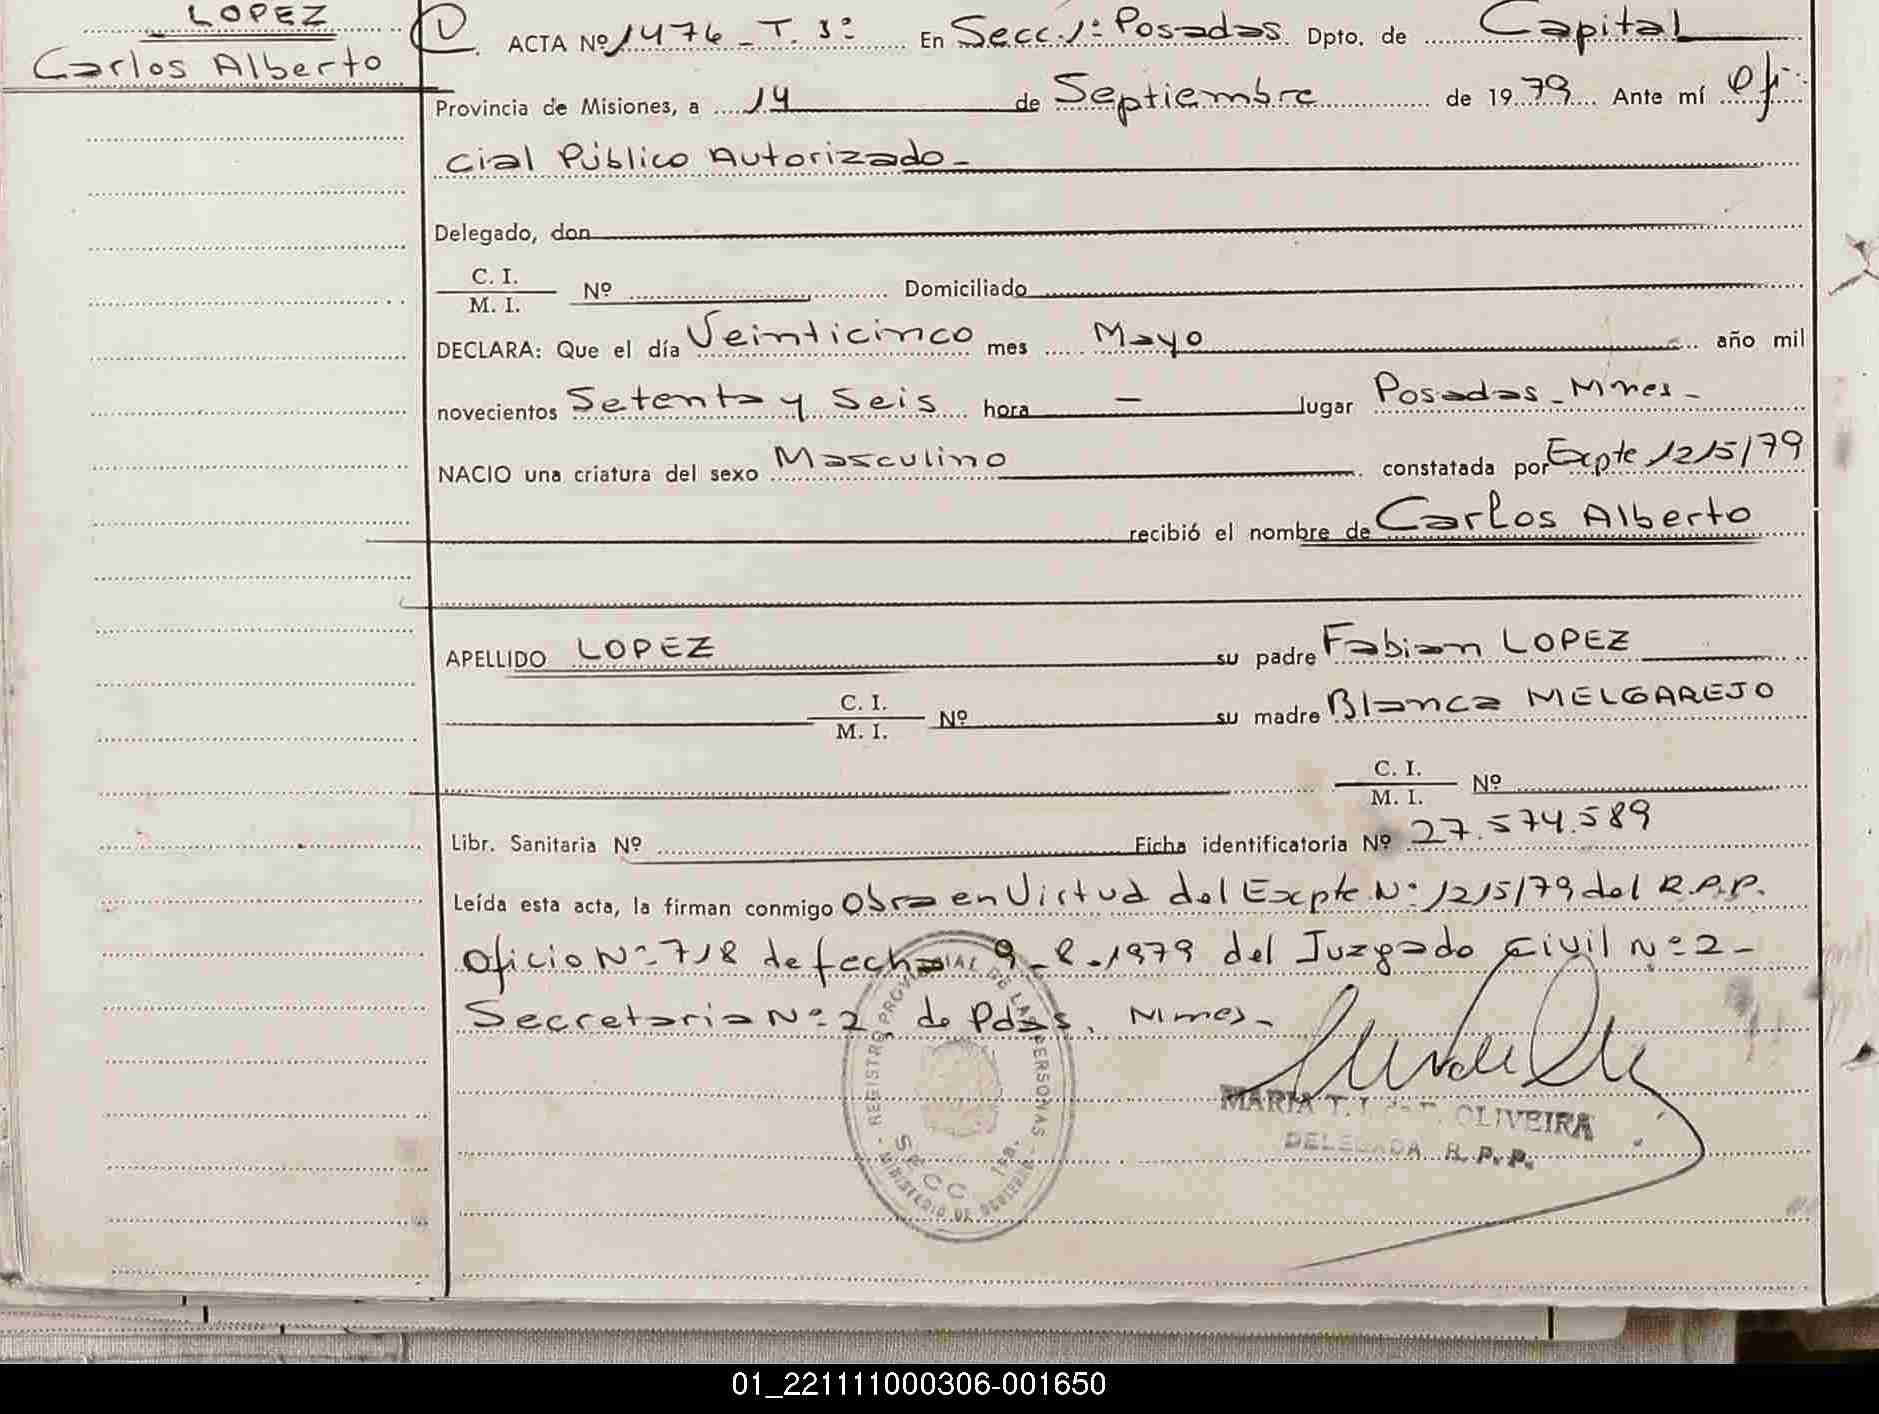 LOPEZ
Carlos Alberto
ACTA Nº 1476 - T. 3º En Secc. 1ª Posadas Dpto. de Capital
Provincia de Misiones, a 14 de Septiembre de 1979 Ante mí Ofi-
cial Público Autorizado -
Delegado, don
C. I.
M. I. Nº Domiciliado
DECLARA: Que el día Veinticinco mes Mayo año mil
novecientos Setenta y Seis hora — lugar Posadas - Mnes -
NACIO una criatura del sexo Masculino constatada por Excpte 1215/79
recibió el nombre de Carlos Alberto
APELLIDO LOPEZ su padre Fabian LOPEZ
C. I.
M. I. Nº su madre Blanca MELGAREJO
C. I.
M. I. Nº
Libr. Sanitaria Nº Ficha identificatoria Nº 27.574.589
Leída esta acta, la firman conmigo Obra en Virtud del Excpte Nº 1215/79 del R.P.P.
Oficio Nº 718 de fecha 9-8-1979 del Juzgado Civil Nº 2 -
Secretaria Nº 2 de Pdas. Mnes -
REGISTRO PROVINCIAL DE LAS PERSONAS
SECC. 1ra.
MINISTERIO DE GOBIERNO
MARIA T. OLIVEIRA
DELEGADA R. P. P.
01_221111000306-001650